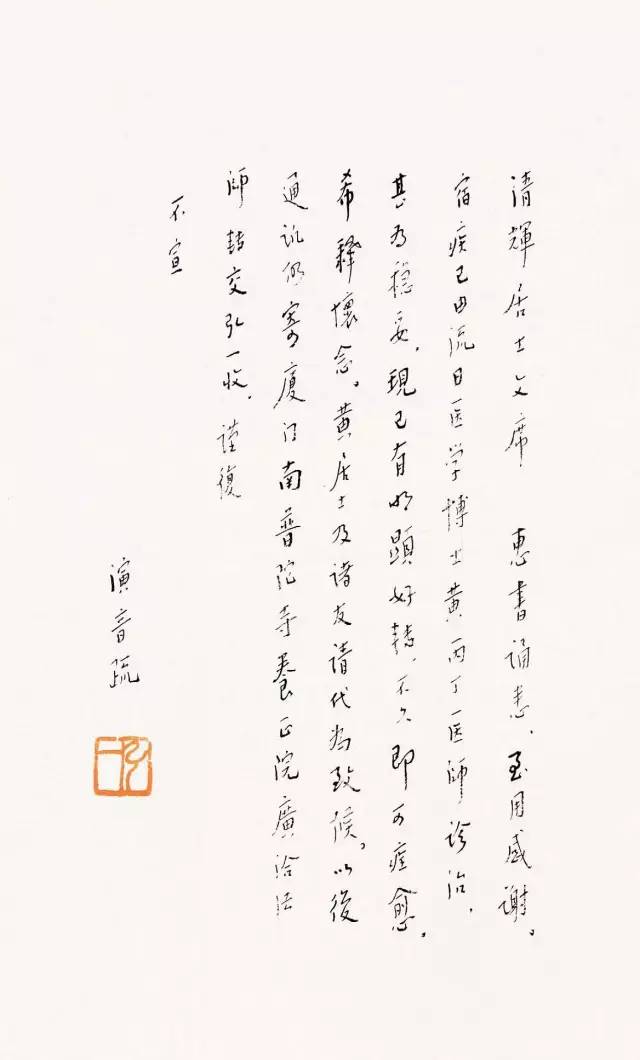 清輝居士文席 惠書誦悉、至用感謝。
宿疾已由流日医学博士黄丙丁医師诊治,
甚为穏妥,現已有明顕好轉,不久即可痊愈。
希釋懷念。黄居士及諸友请代为致候。以後
通訊仍寄厦门南普陀寺養正院廣洽法
師轉交弘一收,谨復
不宣
演音疏
弘一